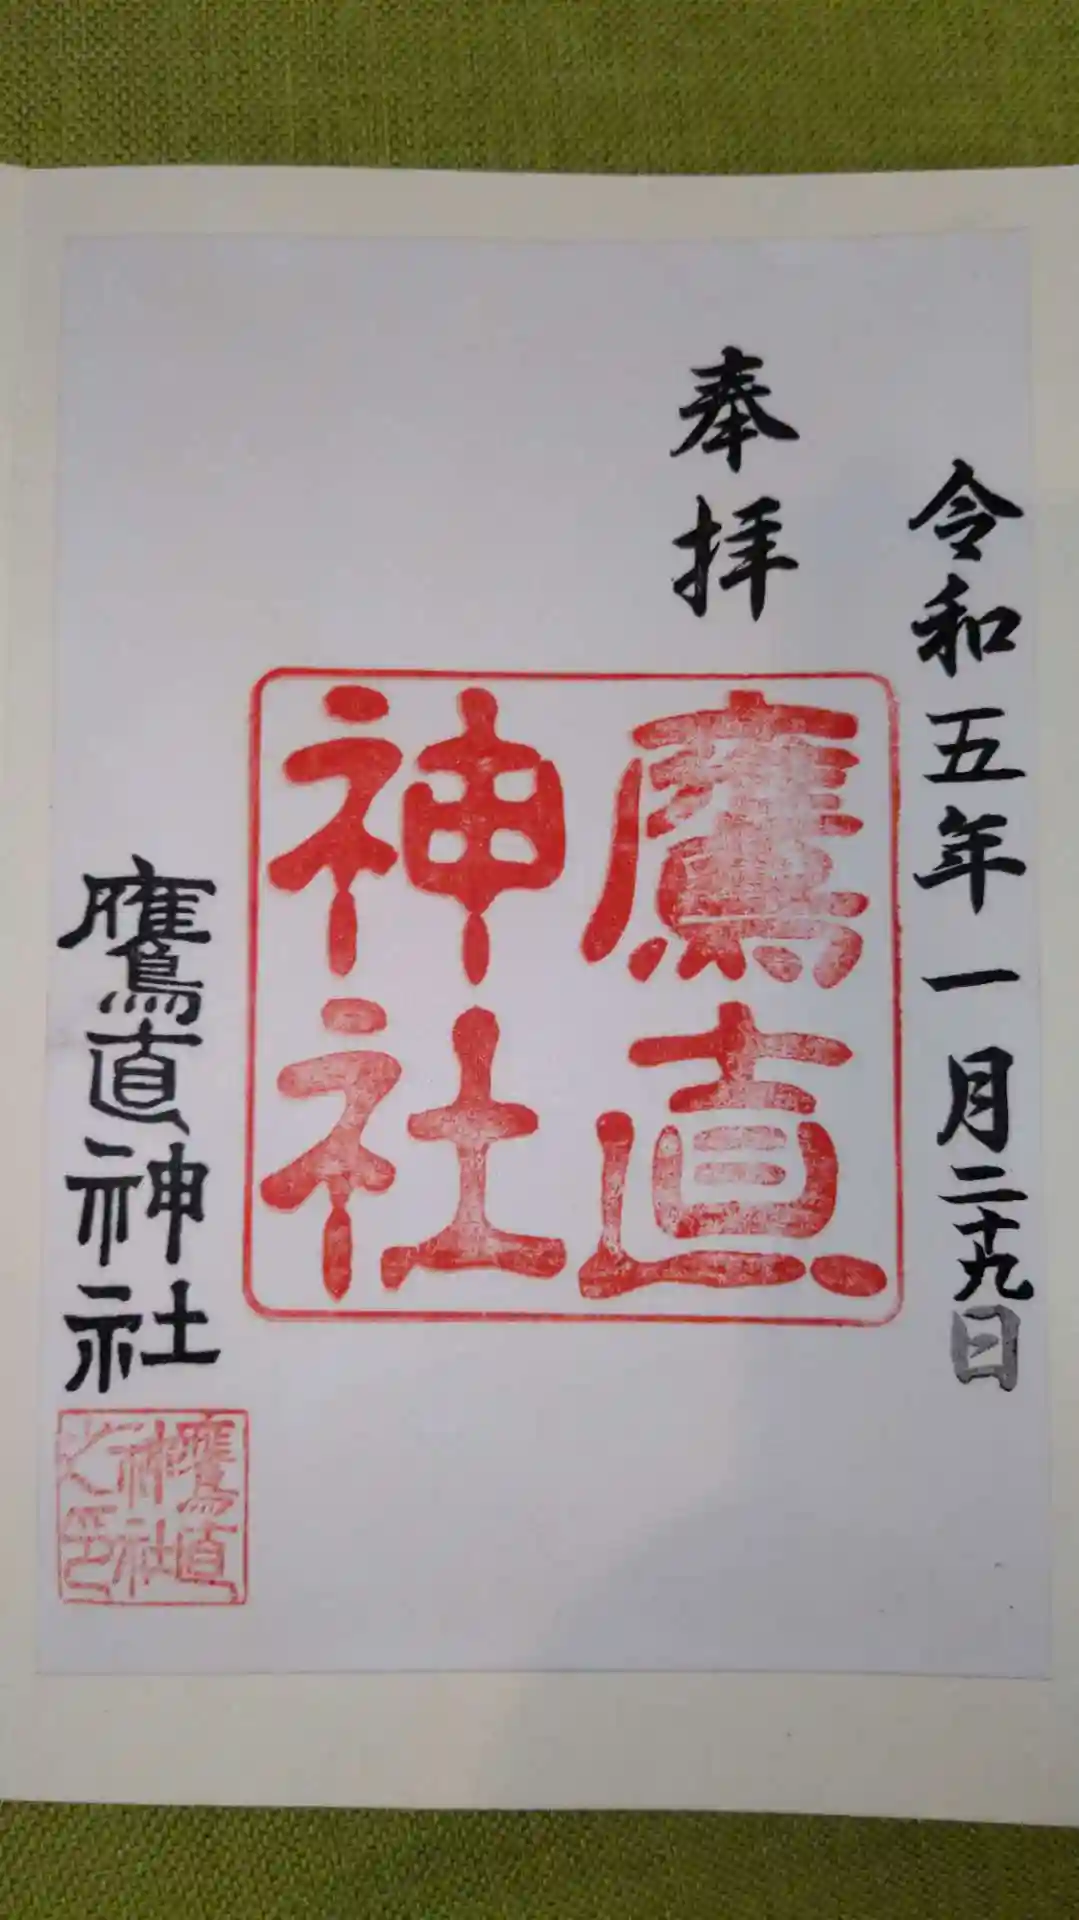 令和五年一月二十九日
奉拝
鷹直
神社
鷹直神社
鷹直
神社
之印